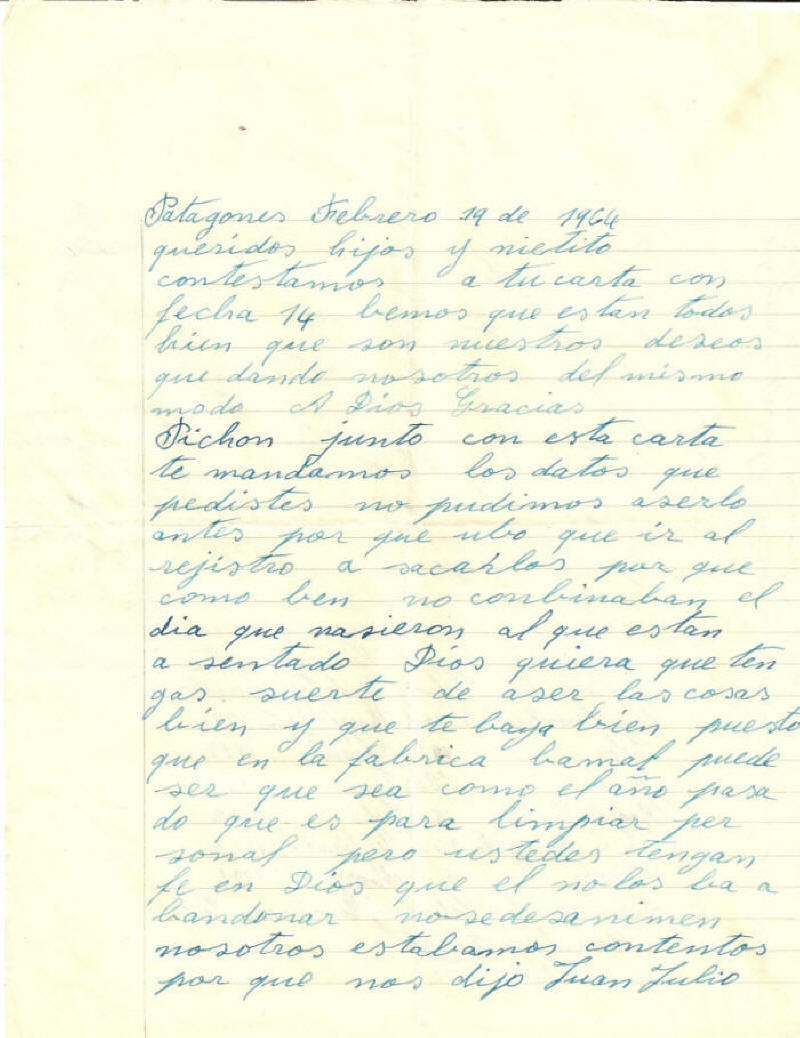 Patagones Febrero 19 de 1964
queridos hijos y nietito
contestamos a tu carta con
fecha 14 bemos que estan todos
bien que son nuestros deseos
que dando nosotros del mismo
modo A Dios Gracias
Pichon junto con esta carta
te mandamos los datos que
pedistes no pudimos aserlo
antes por que ubo que ir al
rejistro a sacarlos por que
como ben no conbinaban el
dia que nasieron al que estan
a sentado Dios quiera que ten
gas suerte de aser las cosas
bien y que te baya bien puesto
que en la fabrica ba mal puede
ser que sea como el año pasa
do que es para limpiar per
sonal pero ustedes tengan
fe en Dios que el no los ba a
bandonar no se desanimen
nosotros estabamos contentos
por que nos dijo Juan Julio